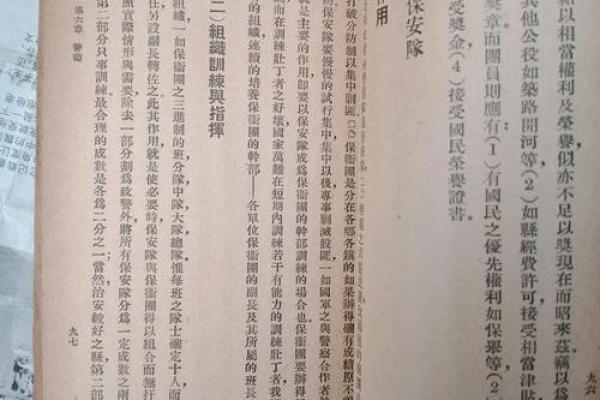 給以相當權利及榮譽似亦不足以獎現在而昭來茲竊以爲
其他公役如築路開河等(2)如縣經費許可接受相當津貼
獎章而團員則應有(1)有國民之優先權利如保舉等(2
受獎金(4)接受國民榮譽證書
保安隊
作用
九六
打破分防制以集中剿匪
保衞團是分在各鄉各鎮的如果辦得確有成績原不
保安隊要慢慢的試行集中集中以後專事剿滅股匪一如國軍之與警察合作者
就是主要的作用卽要以保安隊成爲保衞團的幹部訓練的場合也保衞團要辦得
而在訓練壯丁者之好壞國家萬難在短期內訓練若干有能力的訓練壯丁者我
的組織連續的培養保衞團的幹部——各單位保衞團的副長及其所屬的班長
二)組織訓練與指揮
組織一如保衞團之三進制的班分隊中隊大隊總隊惟每班之隊士確定十人而
住另設副長轉佐之此其作用就是使必要時保安隊與保衞團得以組合而無扞
照實際情形與需要除去一部分劃爲政警外將所有保安隊分爲一定成數之兩
第二部分只事訓練最合理的成數是各爲二分之一當然治安較好之縣第二部
第六章 警衞
九七